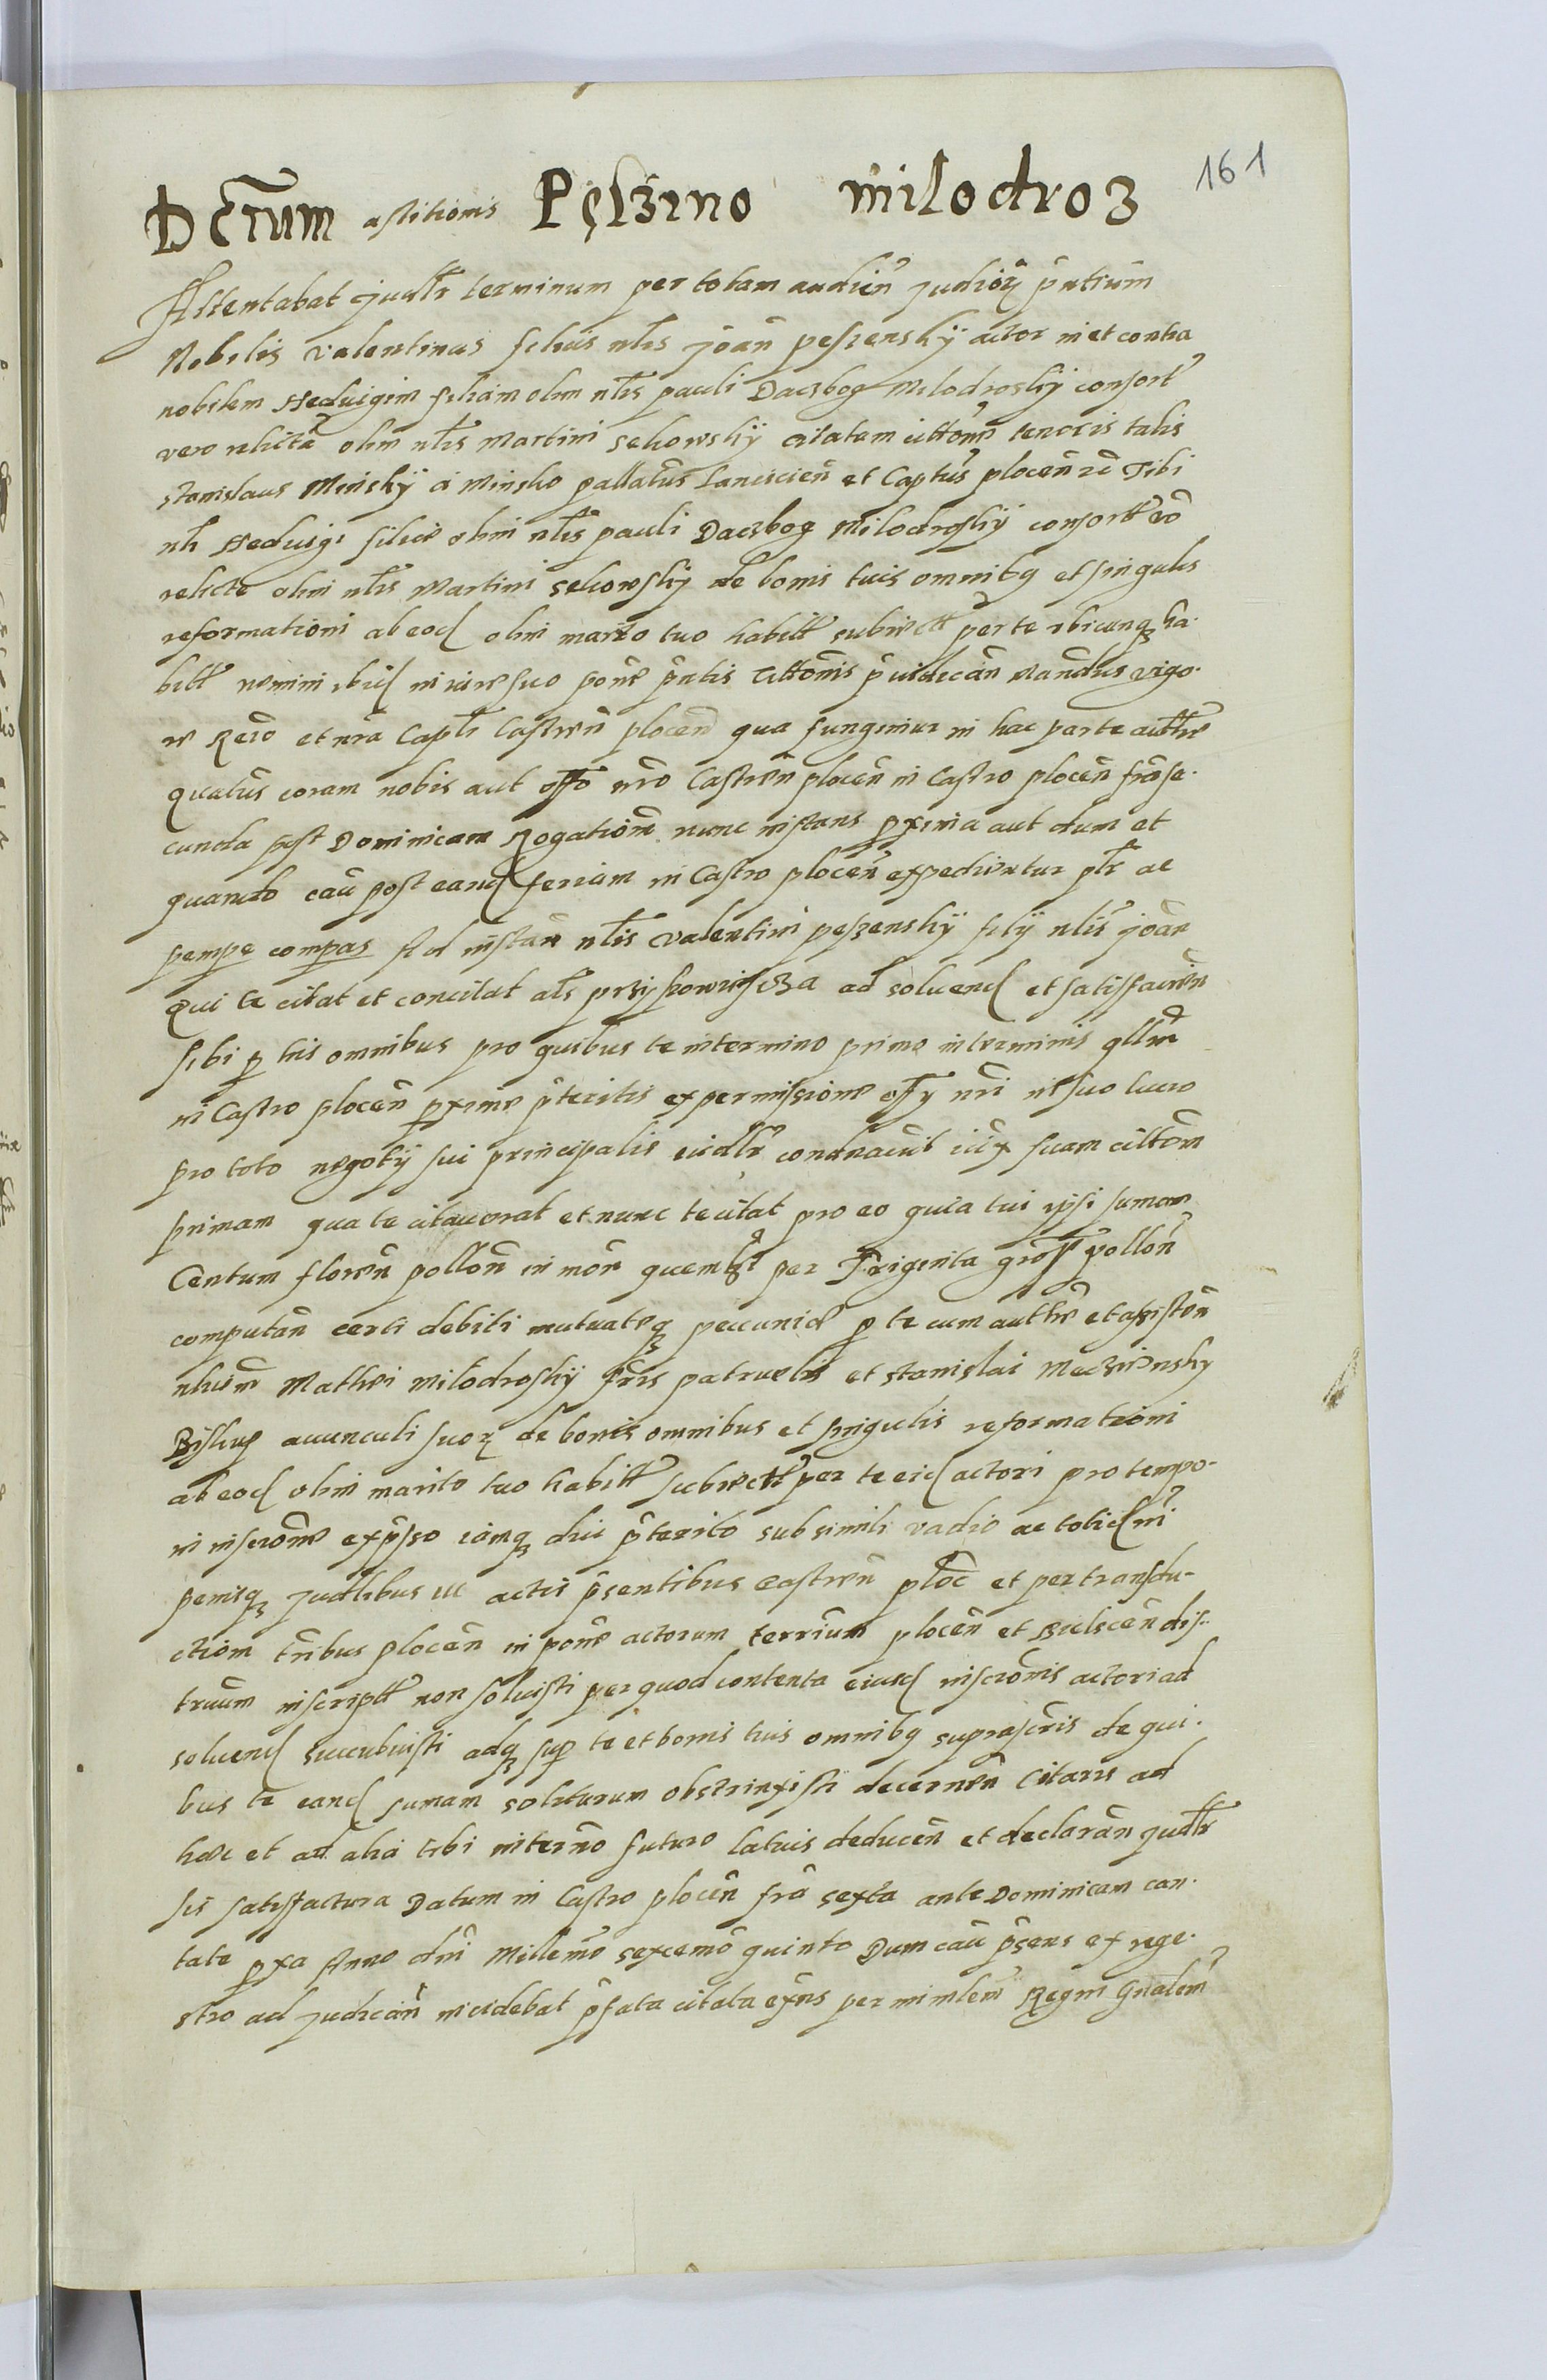 161
Dcrum astitionis Pęszeno milodroz
Attentabat judlr terminum per totam audien judiorz pntium
Nobilis Valentinus filius nlis joan peszensky actor in et contra
nobilem Heduigim filiam olim nlis pauli Daczbog Milodrosky consort
vero relicta olim nlis Martini sekowsky citatam citonis tenoris talis
Stanislaus Minsky a Minsko pallatus Lancicien et Captus plocen rc Tibi
nli Heduigi filie olim nlis pauli Daczbog Milodrosky consortt vo
relicte olim nlis Martini sekowsky de bonis tuis omnibq et singulis
reformationi ab eod olim marito tuo habitt subiectt per te ubicunqz ha-
bitt nomini ibid in iure suo pone pntis Cittonis pindican Mandus vigo-
re Regio et nra Capli Castren plocen qua fungimur in hac parte auttte
quatus coram nobis aut offo nro Castren plocen in Castro plocen fra se-
cunda post Dominicam Rogation nunc instans pxima aut dum et
quando cau post eand feriam in Castro plocen expedientur plr ac
pempe compas Ad instan nlis Valentini peszensky filij nlis joan
Qui te citat et concitat als przypowiescza ad soluend et satisfacien
sibi p his omnibus pro quibus te in termino primo in terminis qllm
in Castro plocen pxime pteritis ex permissione offy nri in suo lucro
pro toto negotij sui principalis iudlr condnacit iux suam cittom
primam qua te citauerat et nunc te citat pro eo quia tui ipsi sumam
Centum floren pollon in mon quemlt per Triginta gross pollon
computan certi debiti mutuateqz peccunie p te cum autte et assisten
nlium Mathei Milodrosky fris patruelis et Stanislai Meczinsky
Biskup auunculi suorz de bonis omnibus et singulis reformationi
ab eod olim marito tuo habitt subiectt per te eid actori pro tempo-
in inscrone expsso iamqz diu pterito sub simili vadio ac totidm
penisqz judlibus uc actis psentibus Castren ploc et per transdu-
ction tribus plocen in pone actorum terrium plocen et Bielscen dis-
truum inscriptt non soluisti per quod contenta eiusd inscronis actori ad
soluend succubuisti adqz sup te et bonis tuis omnibq suprascris de qui-
bus te eand sumam soluturum obstrinxisti decernen Citaris ad
hec et ad alia tibi in termo futuro latius deducen et declaran judlr
sis satisfactura Datum in Castro plocen fra sexta ante Dominicam can-
tate pxa Anno dni Millemo sexcemo quinto Dum cau psens ex rege-
stro ad judican incidebat pfata citata exns per minlem Regni Gnalem